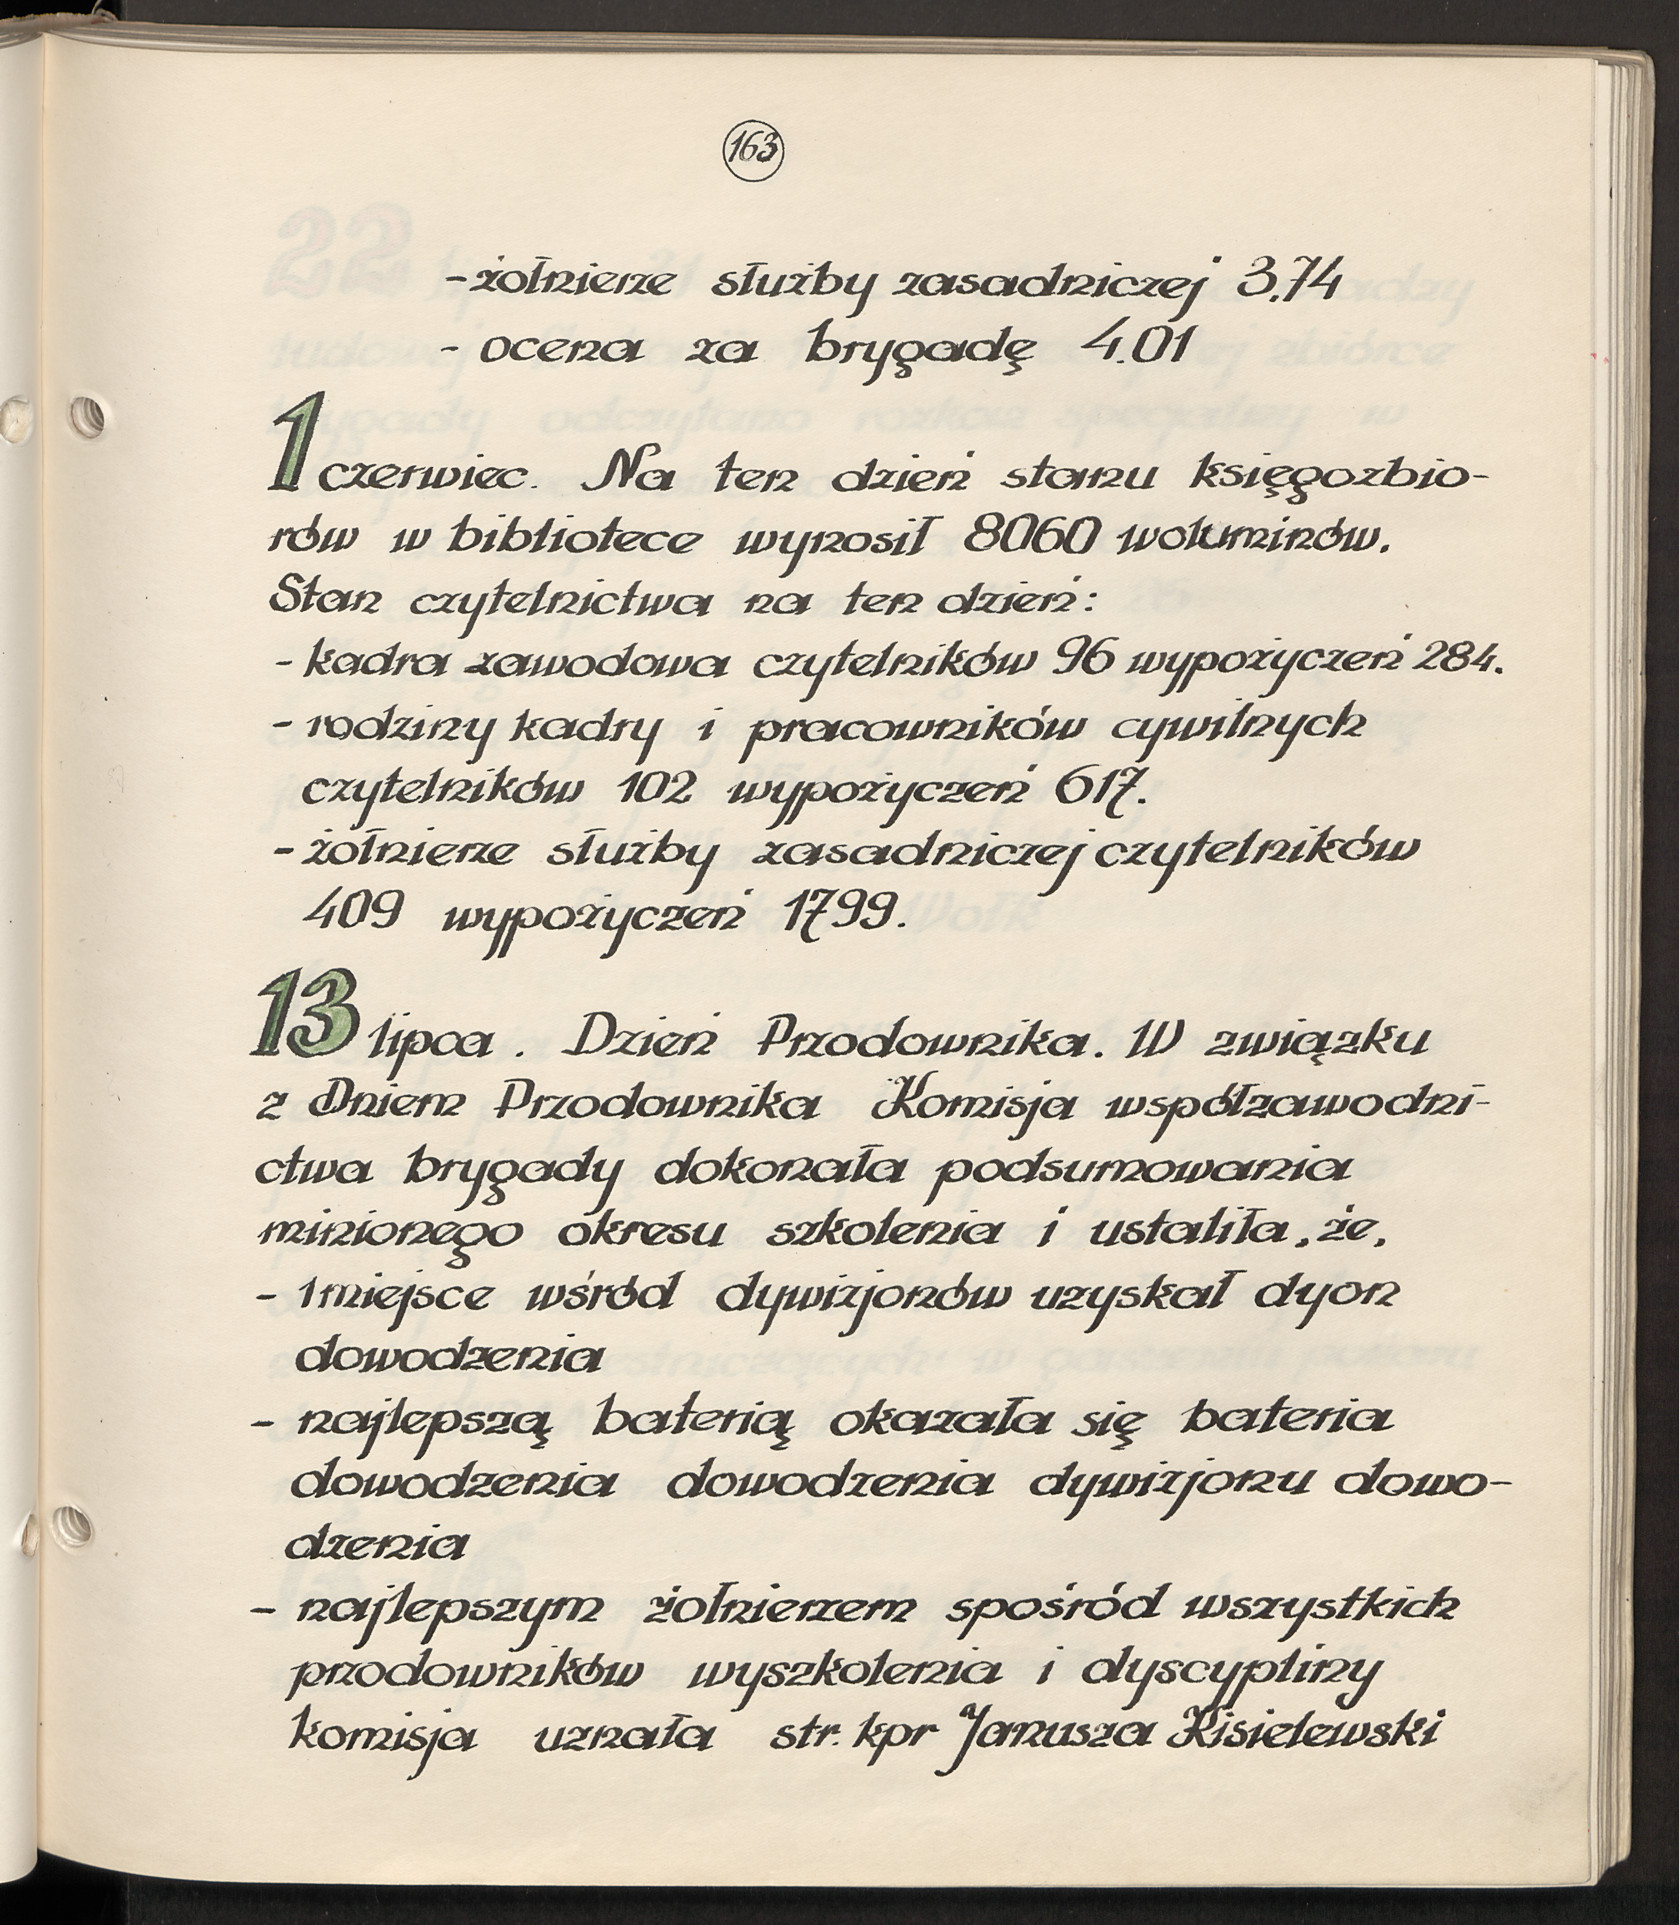 163
- żołnierze służby zasadniczej 3.74
- ocena za brygadę 4.01
1 czerwiec. Na ten dzień stanu księgozbio-
rów w bibliotece wynosił 8060 woluminów.
Stan czytelnictwa na ten dzień:
- kadra zawodowa czytelników 96 wypożyczeń 284.
- rodziny kadry i pracowników cywilnych
czytelników 102 wypożyczeń 617.
- żołnierze służby zasadniczej czytelników
409 wypożyczeń 1799.
13 lipca. Dzień Przodownika. W związku
z Dniem Przodownika Komisja współzawodni-
ctwa brygady dokonała podsumowania
minionego okresu szkolenia i ustaliła, że,
- 1 miejsce wśród dywizjonów uzyskał dyon
dowodzenia
- najlepszą baterią okazała się bateria
dowodzenia dowodzenia dywizjonu dowo-
dzenia
- najlepszym żołnierzem spośród wszystkich
przodowników wyszkolenia i dyscypliny
komisja uznała str. kpr Janusza Kisielewski